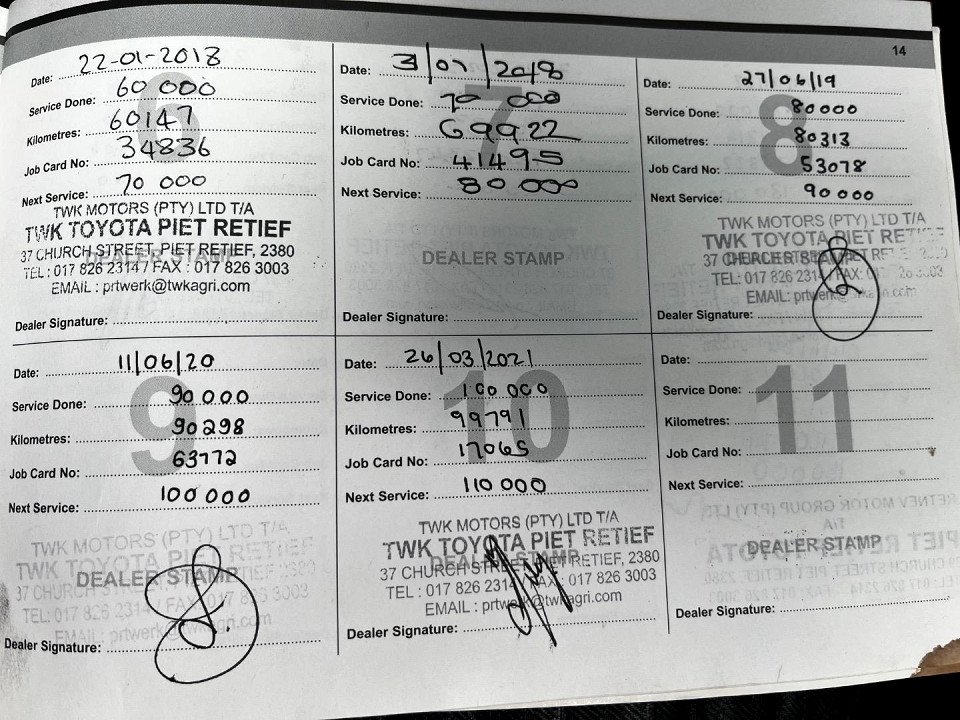 14
6
Date: 22-01-2018
Service Done: 60 000
Kilometres: 60147
Job Card No: 34836
Next Service: 70 000
TWK MOTORS (PTY) LTD T/A
TWK TOYOTA PIET RETIEF
37 CHURCH STREET, PIET RETIEF, 2380
DEALER STAMP
TEL : 017 826 2314 / FAX : 017 826 3003
EMAIL : prtwerk@twkagri.com
Dealer Signature:
7
Date: 31/07/2018
Service Done: 70 000
Kilometres: 69922
Job Card No: 41495
Next Service: 80 000
DEALER STAMP
Dealer Signature:
8
Date: 27/06/19
Service Done: 80000
Kilometres: 80313
Job Card No: 53078
Next Service: 90000
TWK MOTORS (PTY) LTD T/A
TWK TOYOTA PIET RE
37 CH
DEALER STAMP
TEL: 017 826 2314 / FAX: 017 826 3003
EMAIL: prtwerk@twkagri.com
Dealer Signature:
9
Date: 11/06/20
Service Done: 90 000
Kilometres: 90298
Job Card No: 63772
Next Service: 100 000
TWK MOTORS (PTY) LTD T/A
TWK TOYOTA PIET RETIEF
DEALER STAMP
TEL: 017 826 2314 / FAX 017 826 3003
EMAIL : prtwerk@twkagri.com
Dealer Signature:
10
Date: 26/03/2021
Service Done: 100 000
Kilometres: 99791
Job Card No: 17065
Next Service: 110 000
TWK MOTORS (PTY) LTD T/A
TWK TOYOTA PIET RETIEF
DEALER STAMP
37 CHURCH STREET, PIET RETIEF, 2380
TEL : 017 826 2314 / FAX : 017 826 3003
EMAIL : prtwerk@twkagri.com
Dealer Signature:
11
Date:
Service Done:
Kilometres:
Job Card No:
Next Service:
DEALER STAMP
Dealer Signature: